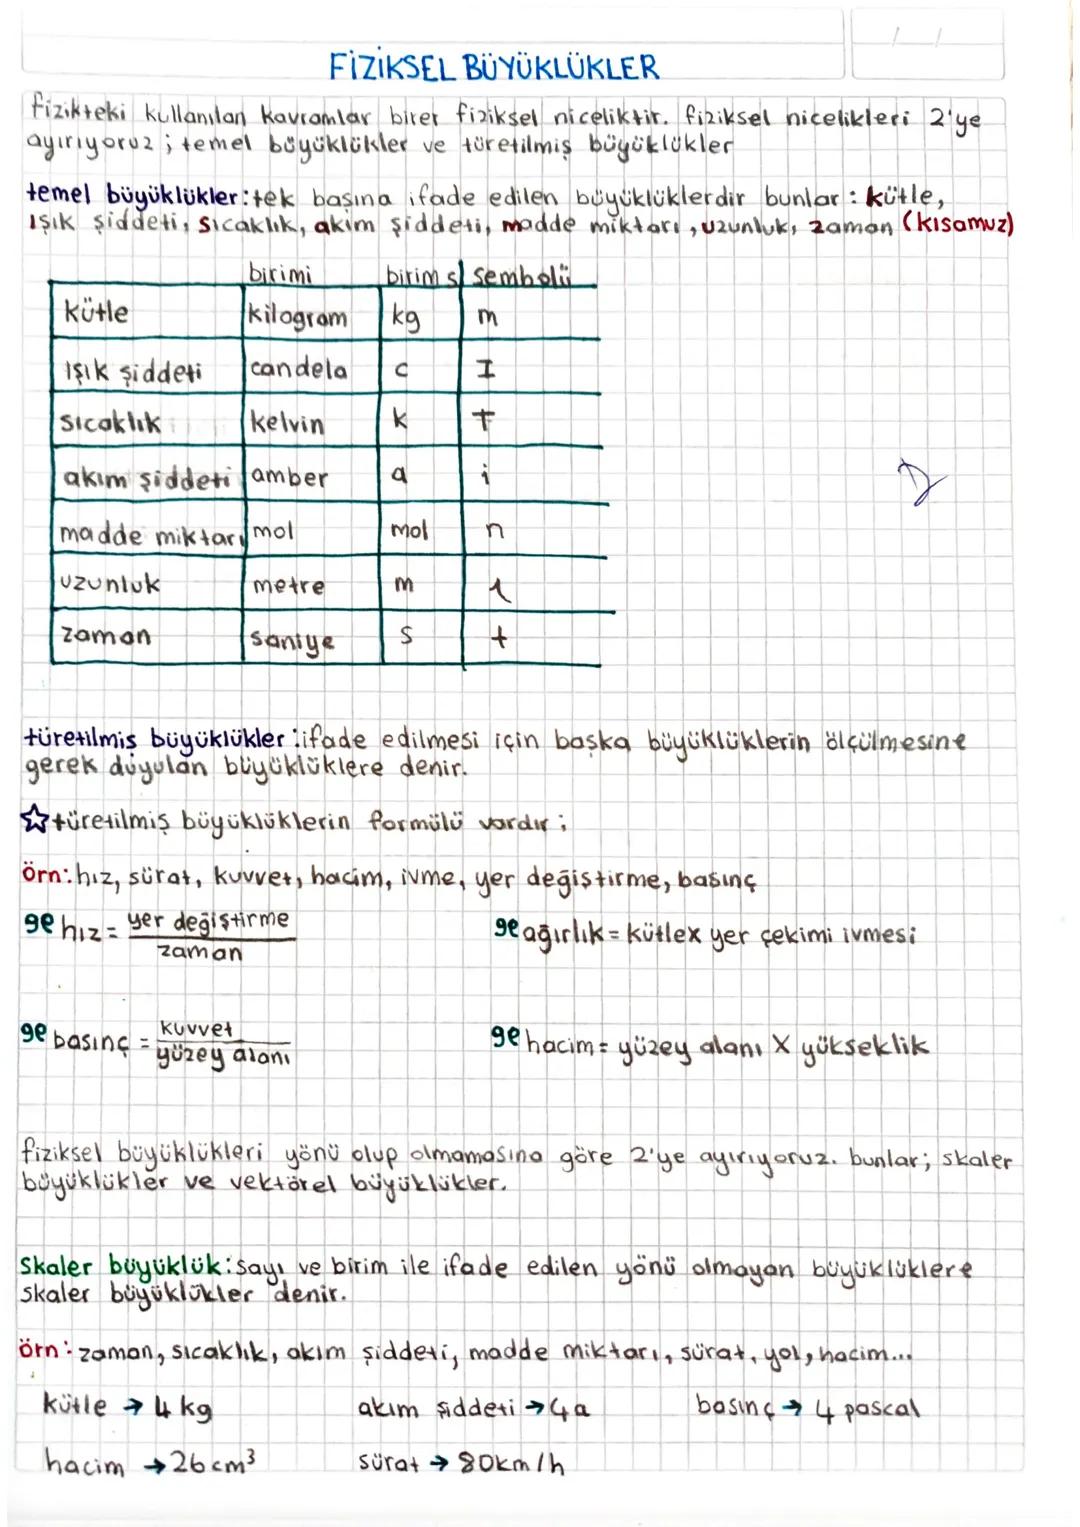 FİZİKSEL BÜYÜKLÜKLER
fizikteki kullanılan kavramlar birer fiziksel niceliktir. fiziksel nicelikleri 2'ye
ayırıyoruz ; temel büyüklükler ve türetilmiş büyüklükler
temel büyüklükler: tek başına ifade edilen büyüklüklerdir bunlar : kütle,
ışık şiddeti, sıcaklık, akım şiddeti, madde miktarı, uzunluk, zaman (kısamuz)
birimi birim s sembolü
kütle kilogram kg m
ışık şiddeti candela c I
sıcaklık kelvin k T
akım şiddeti amber a i
madde miktarı mol mol n
uzunluk metre m l
zaman saniye s t
türetilmiş büyüklükler: ifade edilmesi için başka büyüklüklerin ölçülmesine
gerek duyulan büyüklüklere denir.
☆türetilmiş büyüklüklerin formülü vardır ;
örn: hız, sürat, kuvvet, hacim, ivme, yer değiştirme, basınç
hız = yer değiştirme
zaman
ağırlık = kütle x yer çekimi ivmesi
basınç = kuvvet
yüzey alanı
hacim = yüzey alanı X yükseklik
fiziksel büyüklükleri yönü olup olmamasına göre 2'ye ayırıyoruz. bunlar; skaler
büyüklükler ve vektörel büyüklükler.
Skaler büyüklük: sayı ve birim ile ifade edilen yönü olmayan büyüklüklere
skaler büyüklükler denir.
örn: zaman, sıcaklık, akım şiddeti, madde miktarı, sürat, yol, hacim...
kütle → 4 kg akım şiddeti → 4a basınç → 4 pascal
hacim → 26 cm³ sürat → 80km/h